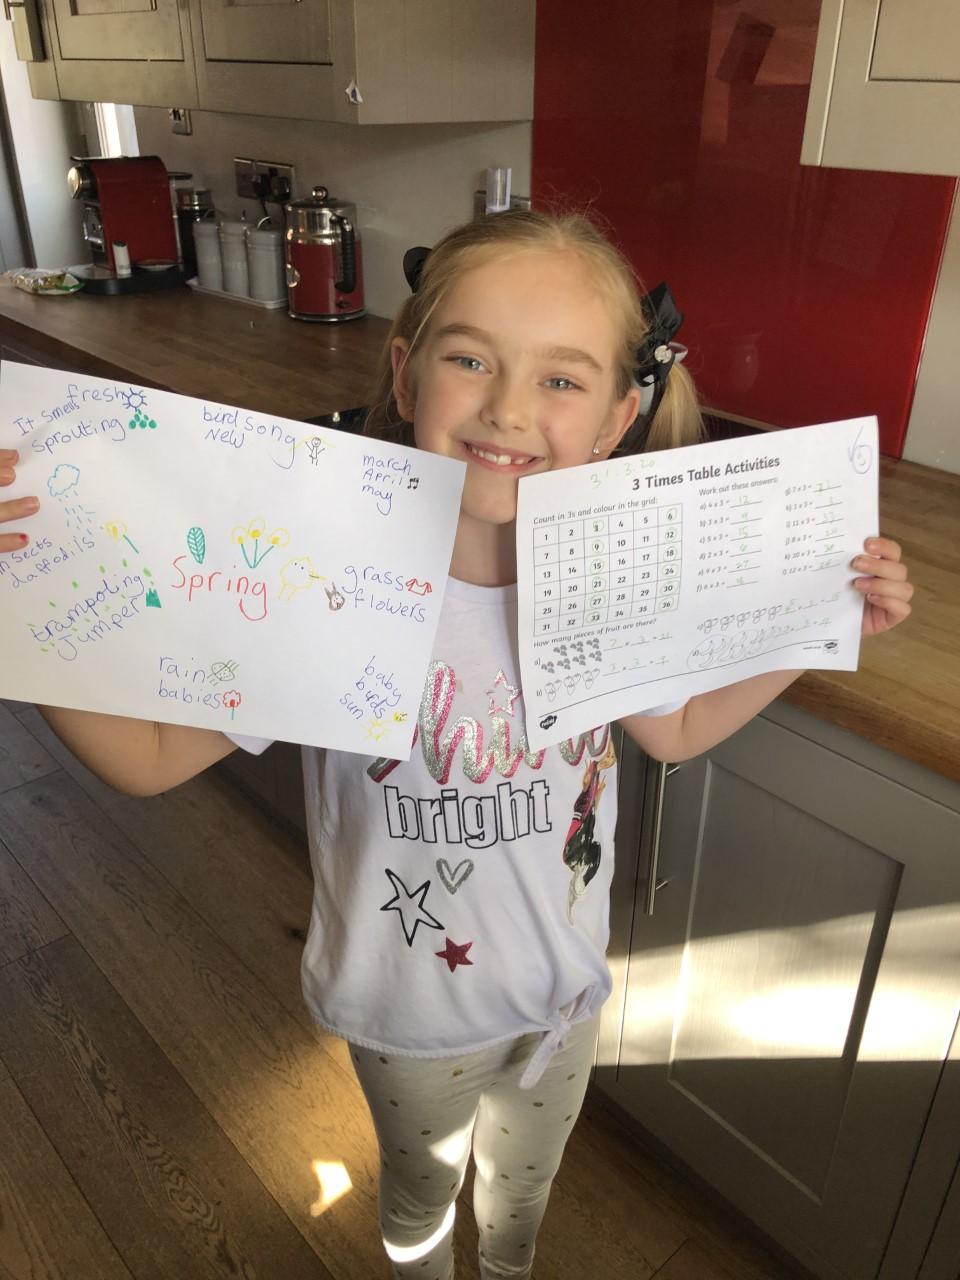 It smells fresh
sprouting
bird song
NEW
march
April
may
insects
daffodils
Spring
grass
flowers
trampoling
jumper
rain
babies
baby
birds
sun
31.3.20
3 Times Table Activities
Count in 3s and colour in the grid:
1 2 3 4 5 6
7 8 9 10 11 12
13 14 15 16 17 18
19 20 21 22 23 24
25 26 27 28 29 30
31 32 33 34 35 36
How many pieces of fruit are there?
a)
b)
Work out these answers:
a) 4 x 3 = 12
b) 3 x 3 = 9
c) 5 x 3 = 15
d) 2 x 3 = 6
e) 9 x 3 = 27
f) 6 x 3 =
g) 7 x 3 = 21
h) 1 x 3 = 3
bright